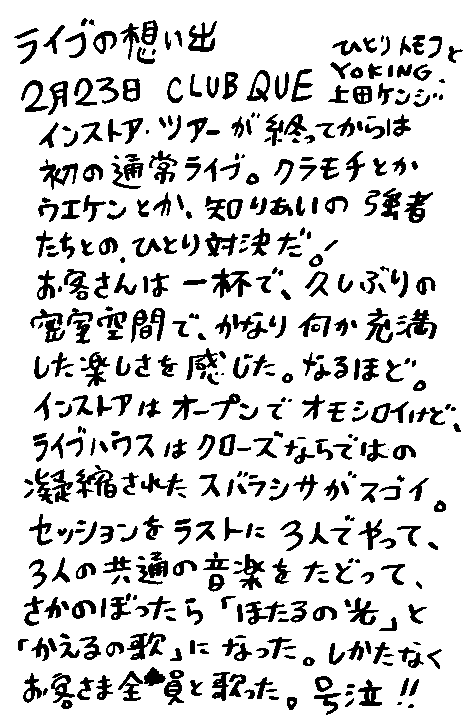 ライブの想い出
ひとりトモフと
YO KING、
上田ケンジ
2月23日 CLUB QUE
インストア・ツアーが終ってからは
初の通常ライブ。クラモチとか
ウエケンとか、知りあいの強者
たちとの、ひとり対決だ!
お客さんは一杯で、久しぶりの
密室空間で、かなり何か充満
した楽しさを感じた。なるほど。
インストアはオープンでオモシロイけど、
ライブハウスはクローズならではの
凝縮されたスバラシサがスゴイ。
セッションをラストに3人でやって、
3人の共通の音楽をたどって、
さかのぼったら「ほたるの光」と
「かえるの歌」になった。しかたなく
お客さま全員と歌った。号泣!!